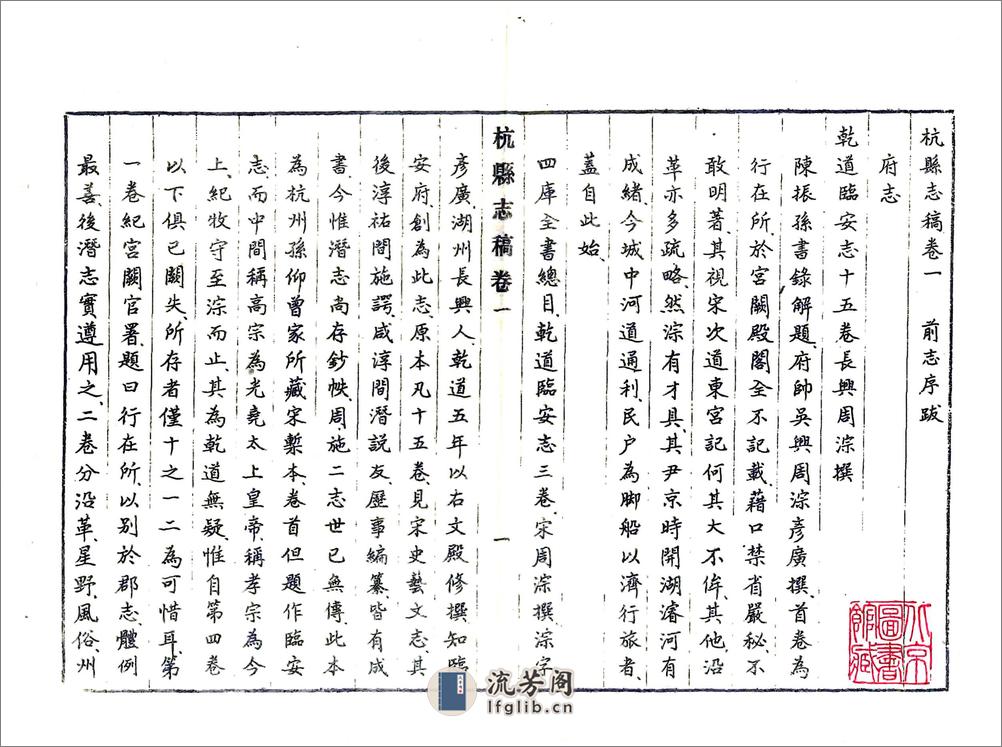 杭縣志稿卷一　前志序跋
府志
乾道臨安志十五卷長興周淙撰
陳振孫書錄解題、府帥吳興周淙彥廣撰、首卷為
行在所、於宮闕殿閣全不記載、藉口禁省嚴秘不
敢明著、其視宋次道東宮記何其大不侔、其他沿
革亦多疏略、然淙有才具、其尹京時開湖濬河有
成緒、今城中河道通利、民戶為脚船以濟行旅者、
蓋自此始、
四庫全書總目、乾道臨安志三卷、宋周淙撰、淙字
杭縣志稿卷一
一
彥廣、湖州長興人、乾道五年以右文殿修撰知臨
安府、創為此志、原本凡十五卷、見宋史藝文志、其
後淳祐間施諤、咸淳間潛說友歷事編纂、皆有成
書、今惟潛志尚存鈔帙、周、施二志世已無傳、此本
為杭州孫仰曾家所藏宋槧本、卷首但題作臨安
志、而中間稱高宗為光堯太上皇帝、稱孝宗為今
上、紀牧守至淙而止、其為乾道無疑、惟自第四卷
以下俱已闕失、所存者僅十之一二為可惜耳、第
一卷紀宮闕官署、題曰行在所、以別於郡志、體例
最善、後潛志實遵用之、二卷分沿革、星野、風俗、州
北京圖書館藏
流芳阁
lfglib.cn